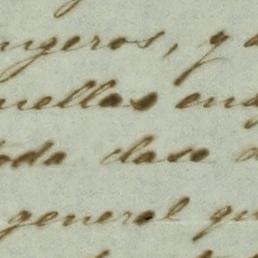 ngeros, y
uellas en
toda clase
general qu